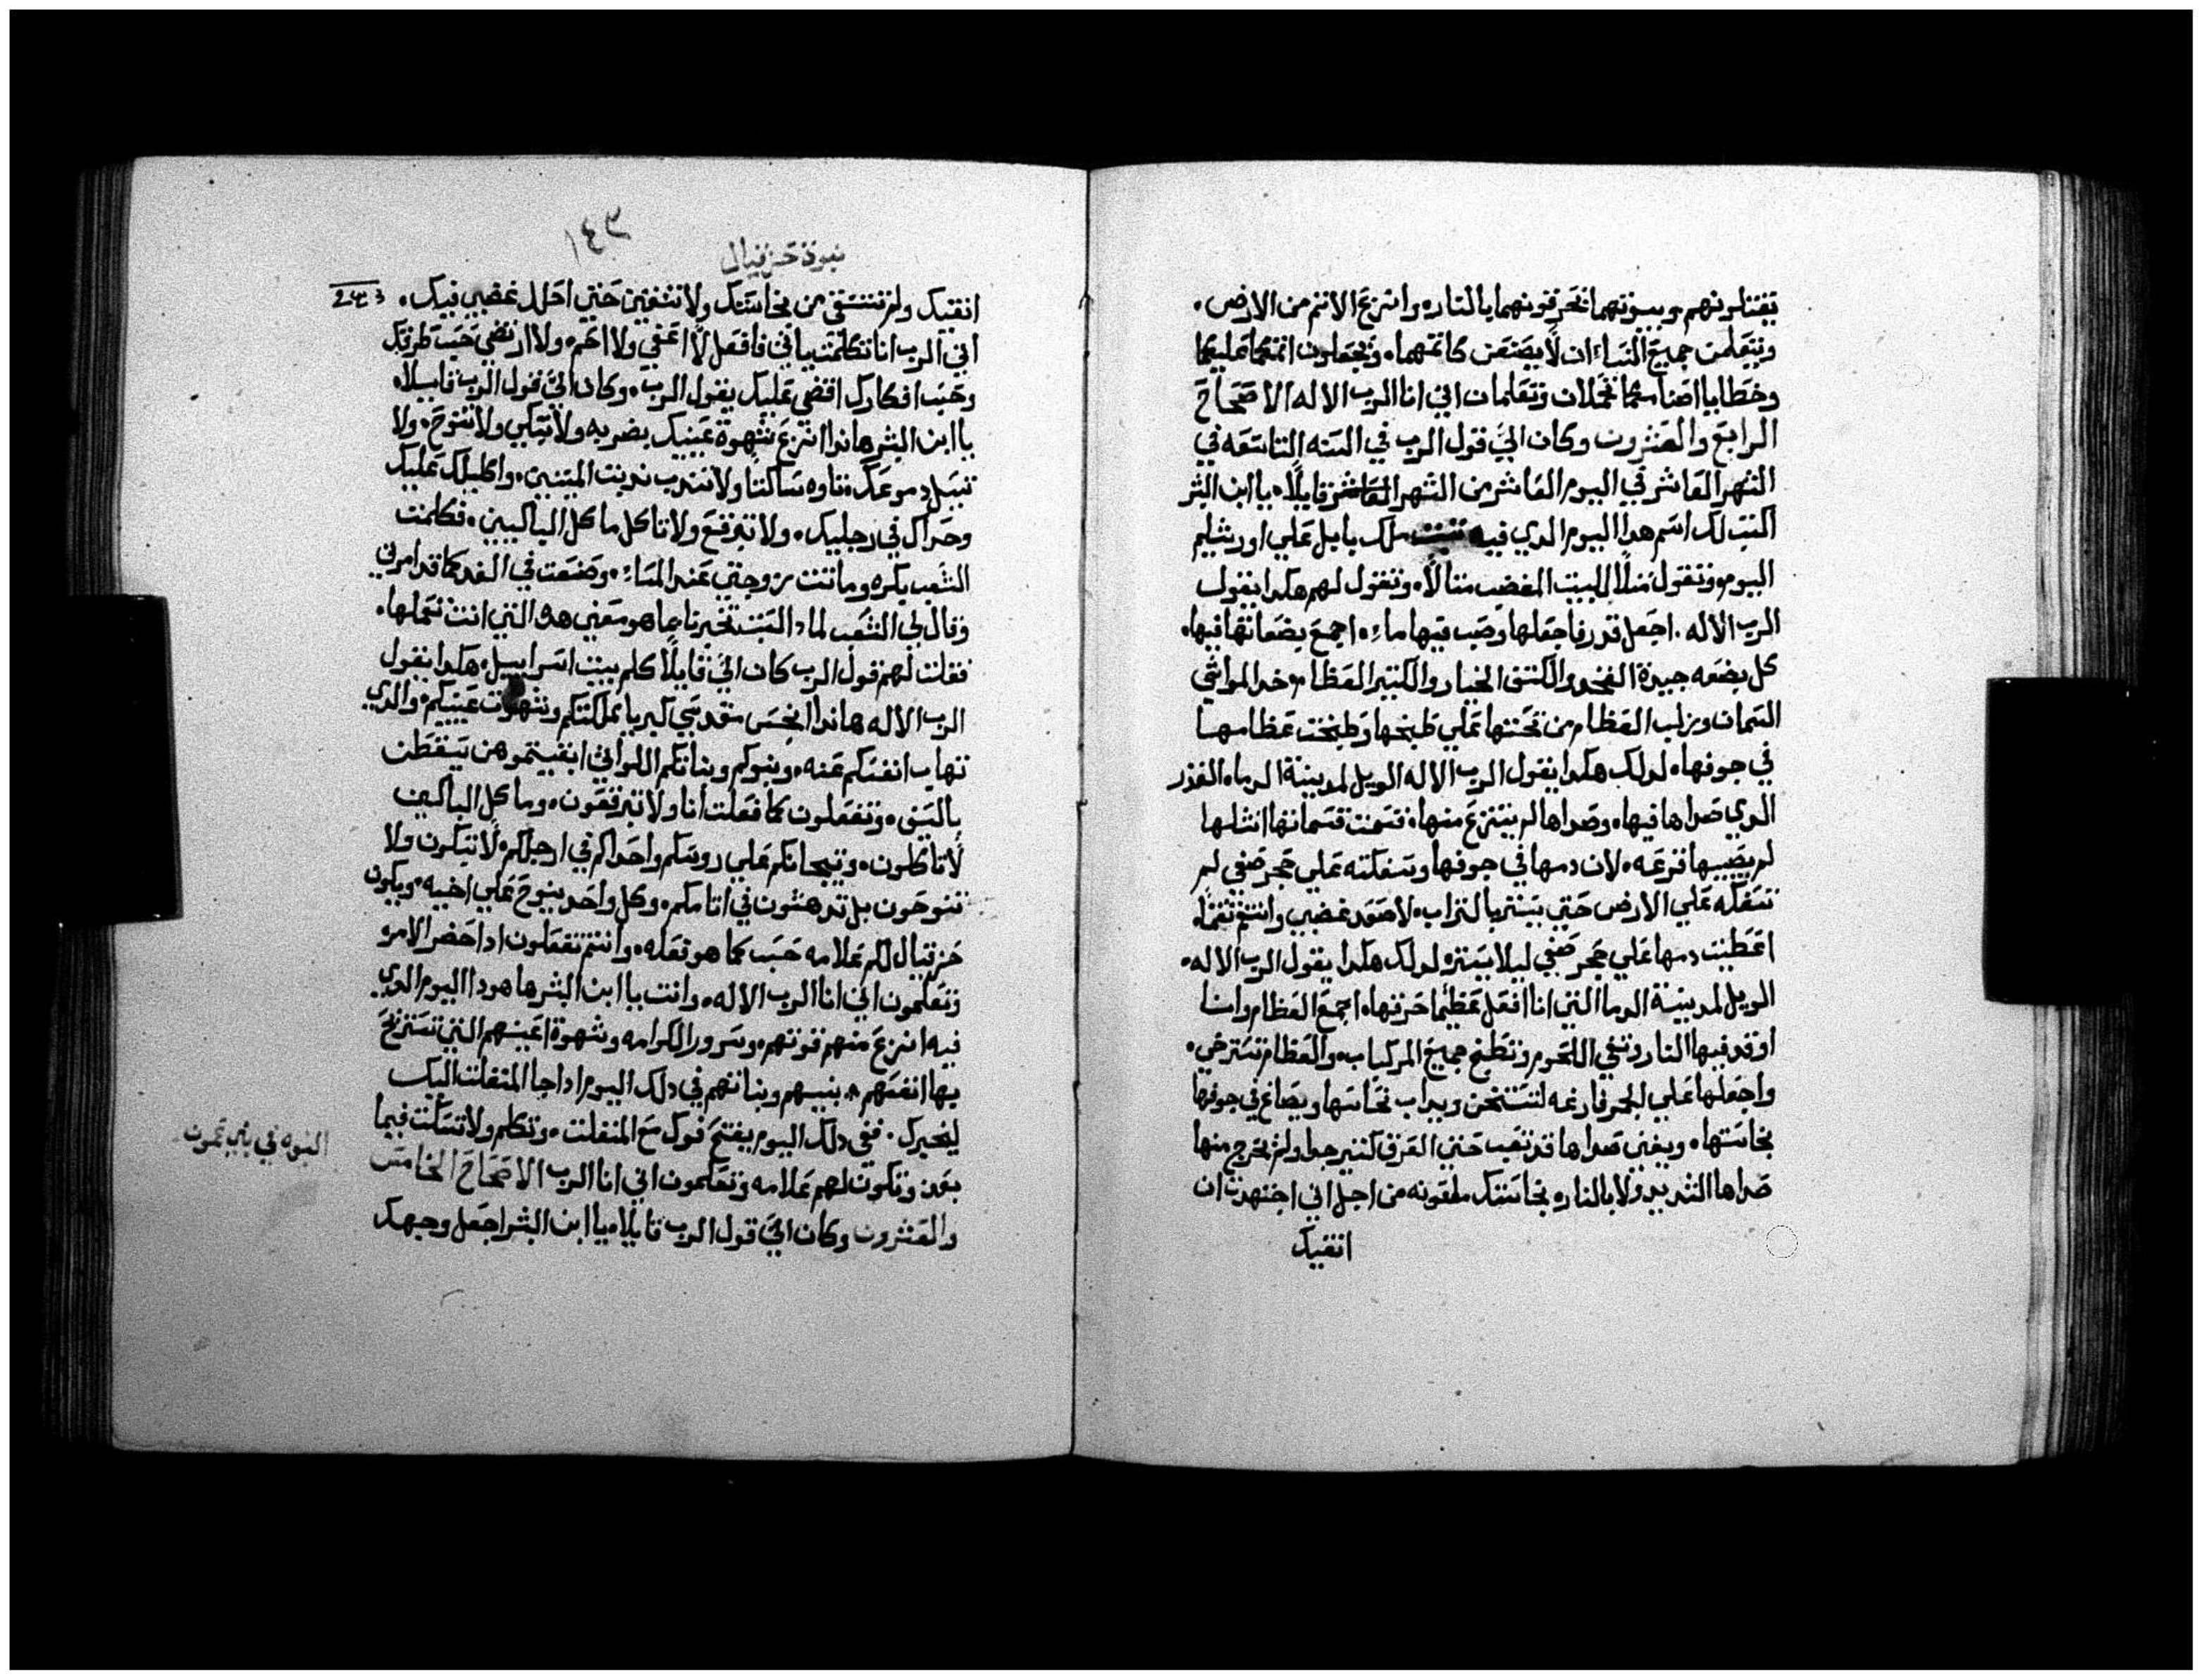 تقتلونهم وبيوتهما تحرقونهما بالنار، وانتزع الاثم من الارض.
وتتعلمن جميع النساء ان لا يصنعن كاثمهما، وتجعلون اثمكما عليكما
وخطايا اصنامكما تحملان وتعلمان اني انا الرب الاله الاصحاح
الرابع والعشرون وكان اليَّ قول الرب في السنه التاسعه في
الشهر العاشر في اليوم العاشر من الشهر قايلًا، يا ابن البشر
اكتب لك اسم هدا اليوم الدي فيه ملك بابل علي اورشليم
اليوم، وتقول مثلًا للبيت المغضب مثالًا، وتقول لهم هكدا يقول
الرب الاله. اجعل قدر فاجعلها وصب فيها ماء، اجمع بضعاتها فيها،
كل بضعه جيدة الفخد والكتف الخيار والكتير العظام، خد المواشي
السمان ورتب العظام من تحتها علي طبخها وطبخت عظامها
في جوفها، لدلك هكدا يقول الرب الاله الويل لمدينة الدماء القدر
الدي صداها فيها، وصداها لم ينتزع منها، قسمت قسماتها انشلها
لم يصيبها قرعه، لان دمها في جوفها وسفكته علي حجر صفي لم
تسفكه علي الارض حتي يستتر بالتراب، لاصعد غضبي وانتقم نقمًا،
اعطيت دمها علي حجر صفي ليلا يستتر، لدلك هكدا يقول الرب الاله،
الويل لمدينة الدما التي انا افعل عظيمًا حرقها، اجمع العظام وانا
اوقد فيها النار وتفني اللحوم وتطبخ جميع المركبات، والعظام تسترخي،
واجعلها علي الجمر فارغه لتستخن ويداب نحاسها ويصاغ في جوفها
نجاستها، ويفني صداها قد تعب حتي العرق كثير جدا ولم يخرج منها
صداها الشديد ولا بالنار، نجاستك ملعونه من اجل اني اجتهدت ان
انقيك
١٤٣
نبوة حزقيال
243
انقيك ولم تتنقي من نجاستك ولا تنقين حتي احلل غضبي فيك،
اني الرب انا تكلمت ياتي فافعل لا اعفي ولا ارحم، ولا ارتضي حسب طرقك
وحسب افكارك اقضي عليك يقول الرب، وكان اليَّ قول الرب قايلًا،
يا ابن البشر هاندا انتزع شهوة عينيك بضربه ولا تبكي ولا تنوح، ولا
تسيل دموعك، تاوه ساكتا ولا تندب ندبت الميتين، واكليلك عليك
وحداك في رجليك، ولا تبرقع ولا تاكل ماكل الباكيين، فكلمت
الشعب بكره وماتت زوجتي عند المساء، وصنعت في الغد كما قد امرني
وقال لي الشعب لمادا لست تخبرنا بما هو معني هده التي انت تعملها،
فقلت لهم قول الرب كان اليَّ قايلًا كلم بيت اسراييل، هكدا يقول
الرب الاله هاندا انجس مقدسي كبريا مملكتكم وشهوات عينيكم، والدي
تهاب انفسكم عنه، وبنوكم وبناتكم اللواتي ابقيتموهن يسقطن
بالسيف، وتفعلون كما فعلت انا ولا تبرقعون، وماكل الباكين
لا تاكلون، وتيجانكم علي روسكم واحداكم في ارجلكم، لا تبكون ولا
تنوحون بل تدهشون في اثامكم، وكل واحد ينوح علي اخيه، ويكون
حزقيال لكم علامه حسب كما هو تعله، وانتم تفعلون ادا حضر الامر،
وتعلمون اني انا الرب الاله، وانت يا ابن البشر ها هودا اليوم الدي
فيه انزع منهم قوتهم، وسرور الكرامه وشهوة اعينهم التي تستريح
بها انفسهم، بنيهم وبناتهم في دلك اليوم ادا جا المنفلت اليك
ليخبرك. ففي دلك اليوم يفتح فوك مع المنفلت، وتكلم ولا تسكت فيما
بعد، وتكون لهم علامه وتعلمون اني انا الرب الاصحاح الخامس
والعشرون وكان اليَّ قول الرب قايلًا، يا ابن البشر اجعل وجهك
النبوه في بني عمون